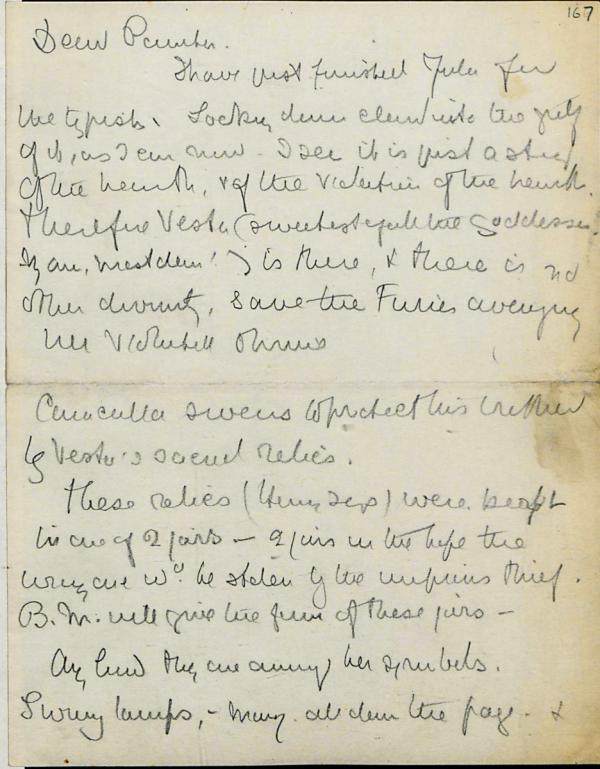 167
Dear Painter.
I have just finished Julia for
the typist. Looking down clear into the pity
of it, as I can now. I see it is just a story
of the hearth, & of the violation of the hearth.
Therefore Vesta (sweetest of all the Goddesses.
) is there, & there is no
other divinity, save the Furies avenging
her violated
Caracalla swears to protect his brother
by Vesta's sacred relics.
These relics (Henry says) were kept
in one of 2 jars — 2 jars in the hope the
wrong one wd. be stolen by the impious thief.
B. M. will give the form of these jars —
Any how they are among her symbols.
Swing lamps, — many. all down the page. &